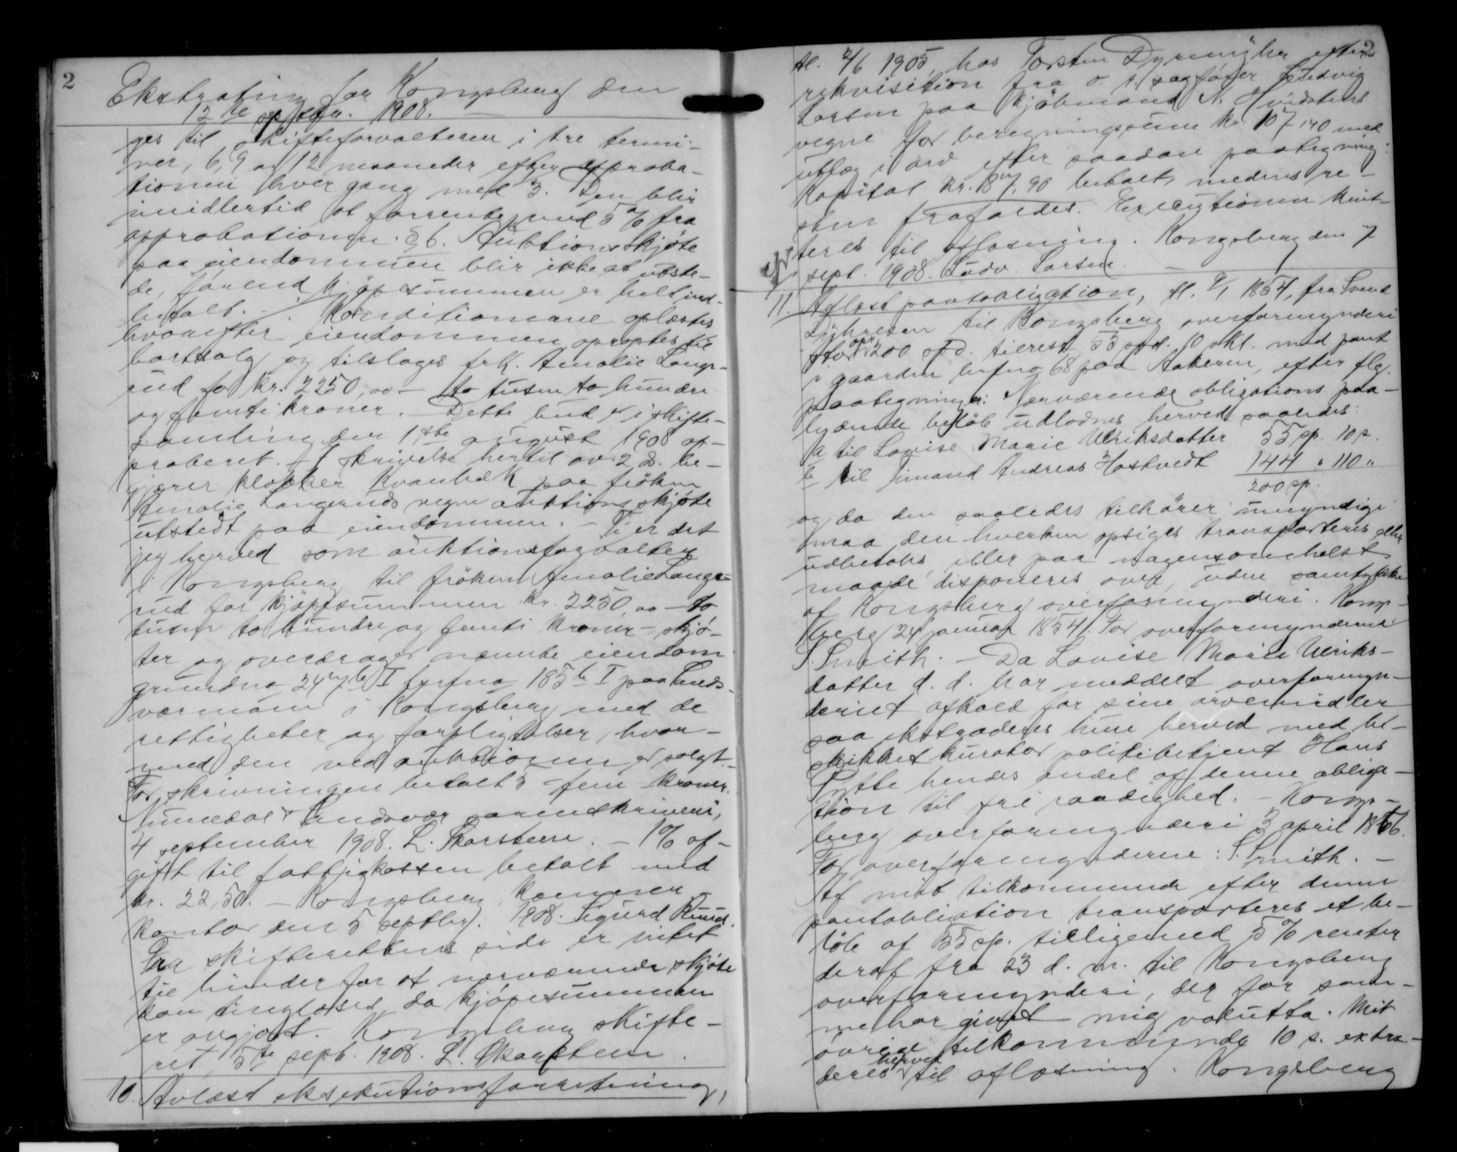 2
Ekstrating for Kongsberg den
12te septbr. 1908.
ges til skifteforvalteren i tre termi-
ner, 6, 9 og 12 maaneder efter approba-
tionen hver gang med ⅓. Den blir
imidlertid at forrente med 5 % fra
approbationen. § 6. Auktionsskjøte
paa eiendommen blir ikke at utste-
de, førend kjøpesummen er helt ind-
betalt. — Konditionerne oplæstes
hvorefter eiendommen opraptes til
bortsalg og tilsloges frk. Amalie Lange-
rud for kr. 2250,00 — to tusen to hundre
og femti kroner. — Dette bud er i skifte-
samling den 14de august 1908 ap-
proberet. I skrivelse hertil av 2 d. be-
gjærer klokker Kvanbæk paa frøken
Amalie Langeruds vegne auktionsskjøte
utstedt paa eiendommen. — Ti er det
jeg herved som auktionsforvalter
i Kongsberg til frøken Amalie Lange-
rud for kjøpesummen kr. 2250,00 — to
tusen to hundre og femti kroner — skjø-
ter og overdrager nævnte eiendom
grundno 247 b I byfno 185 b I paa Lunds-
værmoen i Kongsberg med de
rettigheter og forpligtelser, hvor-
med den ved auktionen er solgt.
For skrivningen betalt fem kroner.
Numedal & Sandsvær sorenskriveri,
4 september 1908. L. Skarsteen. — 1 % af-
gift til fattigkassen betalt med
kr. 22,50. — Kongsberg kæmner
kontor den 5 septbr. 1908. Sigurd Ruud.
Fra skifterettens side er intet
til hinder for at nærværende skjøte
kan tinglæses, da kjøpesummen
er avgjort. Kongsberg skifte-
ret 5te sept. 1908. L. Skarsteen.
10. Avlæst eksekutionsforretning,
2
dl. 2/6 1905 hos Torsten Dyrmyhr efter
rekvisition fra o. r. sagfører Ludvig
Larsen paa kjøbmand N. Hvidstens
vegne for beregningssum kr. 107,40 med
utlæg i arv efter saadan paategning:
Kapital kr. 87,90 betalt, medens re-
sten frafaldes. Executionen kvit-
teres til aflæsning. Kongsberg den 7
sept. 1908. Ludv. Larsen. —
11. Avlæst pantobligation, dl. 2/1 1854, fra Svend
Lühresen til Kongsberg overformynderi
for opr. 200 spd. tilrest 55 spd. 10 skl. med pant
i gaarden byfno 68 paa Aakeren, efter flg.
paategninger: Nærværende obligations paa-
lydende beløb udlodnes herved saaledes:
a til Lovise Marie Ulriksdatter 55 sp. 10 s.
b til Amand Andreas Hostvedt 144 " 110 "
200 sp.
og da den saaledes tilhører umyndige
maa den hverken opsiges transporteres eller
udbetales eller paa nogensomhelst
maade disponeres over, uden samtykke
af Kongsberg overformynderi. Kongs-
berg 24 januar 1854. For overformynderiet
S. Smith. — Da Lovise Marie Ulriks-
datter d. d. har meddelt overformyn-
deriet afkald for sine arvemidler
saa extraderes hun herved med be-
skikket kurator politibetjent Hans
Pytte hendes andel af denne obliga-
tion til fri raadighed. — Kongs-
berg overformynderi 3 april 1856.
For overformynderne: S. Smith. —
Af mit tilkommende efter denne
pantobligation transporteres et be-
løb af 55 sp. tilligemed 5 % renter
deraf fra 23 d. m. til Kongsberg
overformynderi, der for sam-
me har givet mig valutta. Mit
øvrige tilkommende 10 s. extra-
deres herved til aflæsning. Kongsberg